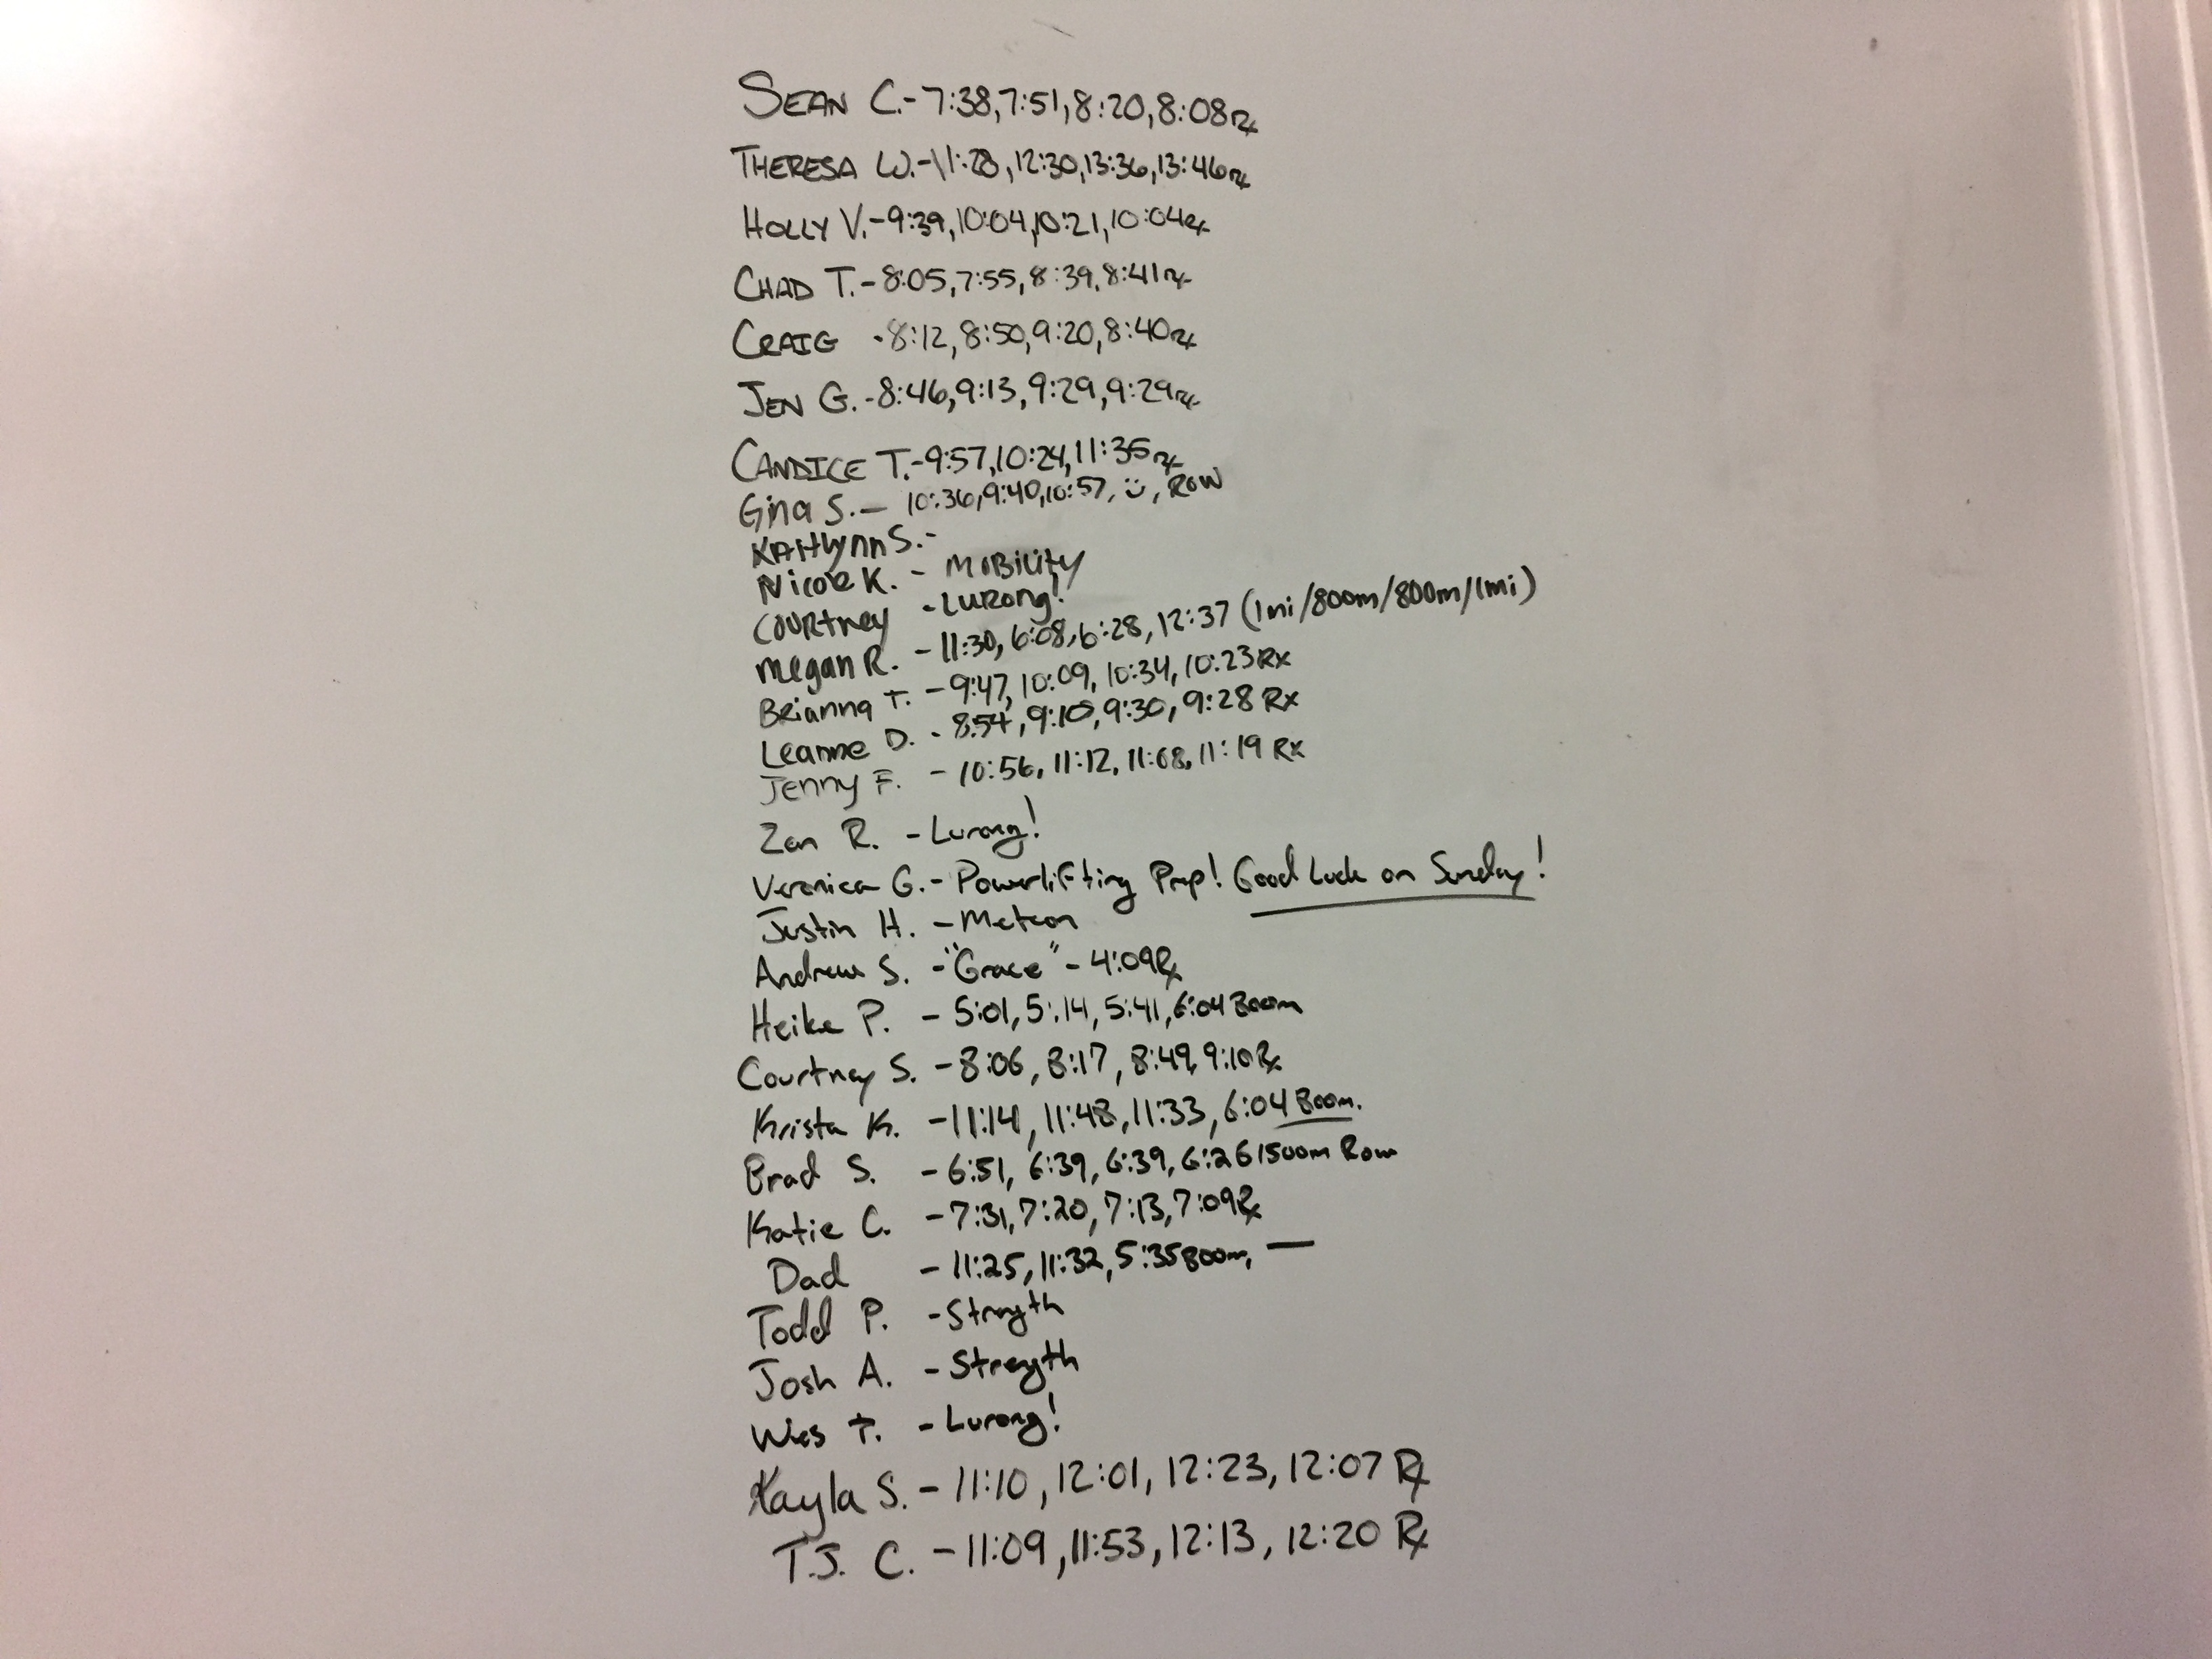 SEAN C.-7:38,7:51,8:20,8:08 Rx
THERESA W.-11:28,12:30,13:36,13:46 Rx
HOLLY V.-9:39,10:04,10:21,10:04 Rx
CHAD T.-8:05,7:55,8:39,8:41 Rx
CRAIG -8:12,8:50,9:20,8:40 Rx
JEN G.-8:46,9:13,9:29,9:29 Rx
CANDICE T.-9:57,10:24,11:35 Rx
Gina S.- 10:36,9:40,10:57, ü, ROW
KAitlynn S.-
Nicole K. - MOBility
COURtney -LURong!
Megan R. - 11:30, 6:08, 6:28, 12:37 (1mi/800m/800m/1mi)
Brianna T. - 9:47, 10:09, 10:34, 10:23 Rx
Leanne D. - 8:54, 9:10, 9:30, 9:28 Rx
Jenny F. - 10:56, 11:12, 11:08, 11:19 Rx
Zan R. - Lurong!
Veronica G.- Powerlifting Prep! Good Luck on Sunday!
Justin H. - Metcon
Andrew S. -"Grace"- 4:09 Rx
Heike P. - 5:01, 5:14, 5:41, 6:04 800m
Courtney S. - 8:06, 8:17, 8:49, 9:10 Rx
Krista K. - 11:14, 11:48, 11:33, 6:04 800m.
Brad S. - 6:51, 6:39, 6:39, 6:26 1500m Row
Katie C. - 7:31, 7:20, 7:13, 7:09 Rx
Dad - 11:25, 11:32, 5:35 800m, —
Todd P. - Strength
Josh A. - Strength
Wes T. - Lurong!
Kayla S. - 11:10, 12:01, 12:23, 12:07 Rx
T.J. C. - 11:09, 11:53, 12:13, 12:20 Rx